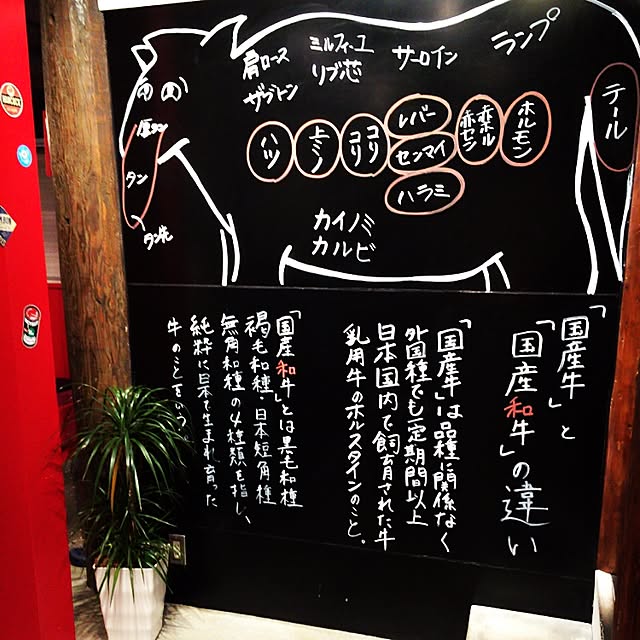 肩ロース
ザブトン
ミルフィーユ
リブ芯
サーロイン
ランプ
テール
厚タン
タン
タン先
ハツ
上ミノ
コリコリ
レバー
センマイ
ハラミ
赤セン
ホルモン
カイノミ
カルビ
「国産牛」と
「国産和牛」の違い
「国産牛」は品種に関係なく
外国種でも一定期間以上
日本国内で飼育された牛
乳用牛のホルスタインのこと。
「国産和牛」とは黒毛和種
褐毛和種・日本短角種
無角和種の4種類を指し、
純粋に日本で生まれ育った
牛のことをいう